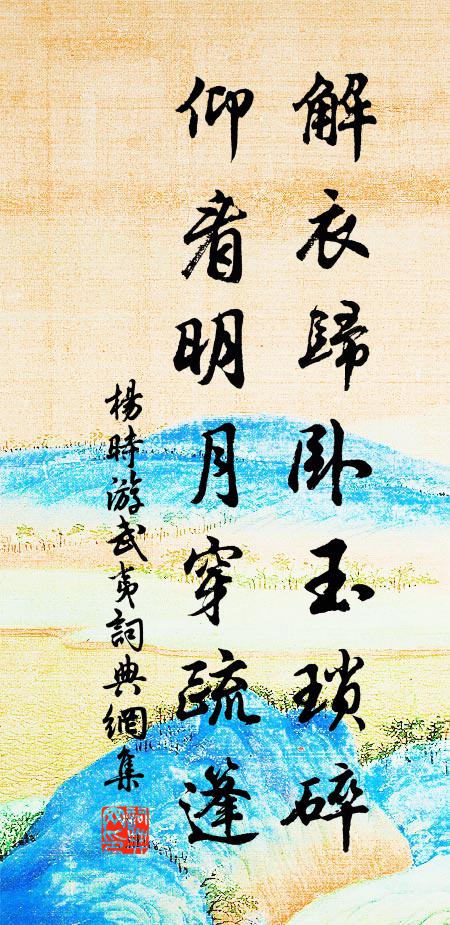 解衣歸卧玉瑣碎
仰看明月穿疏篷
楊時游武夷詞典網集